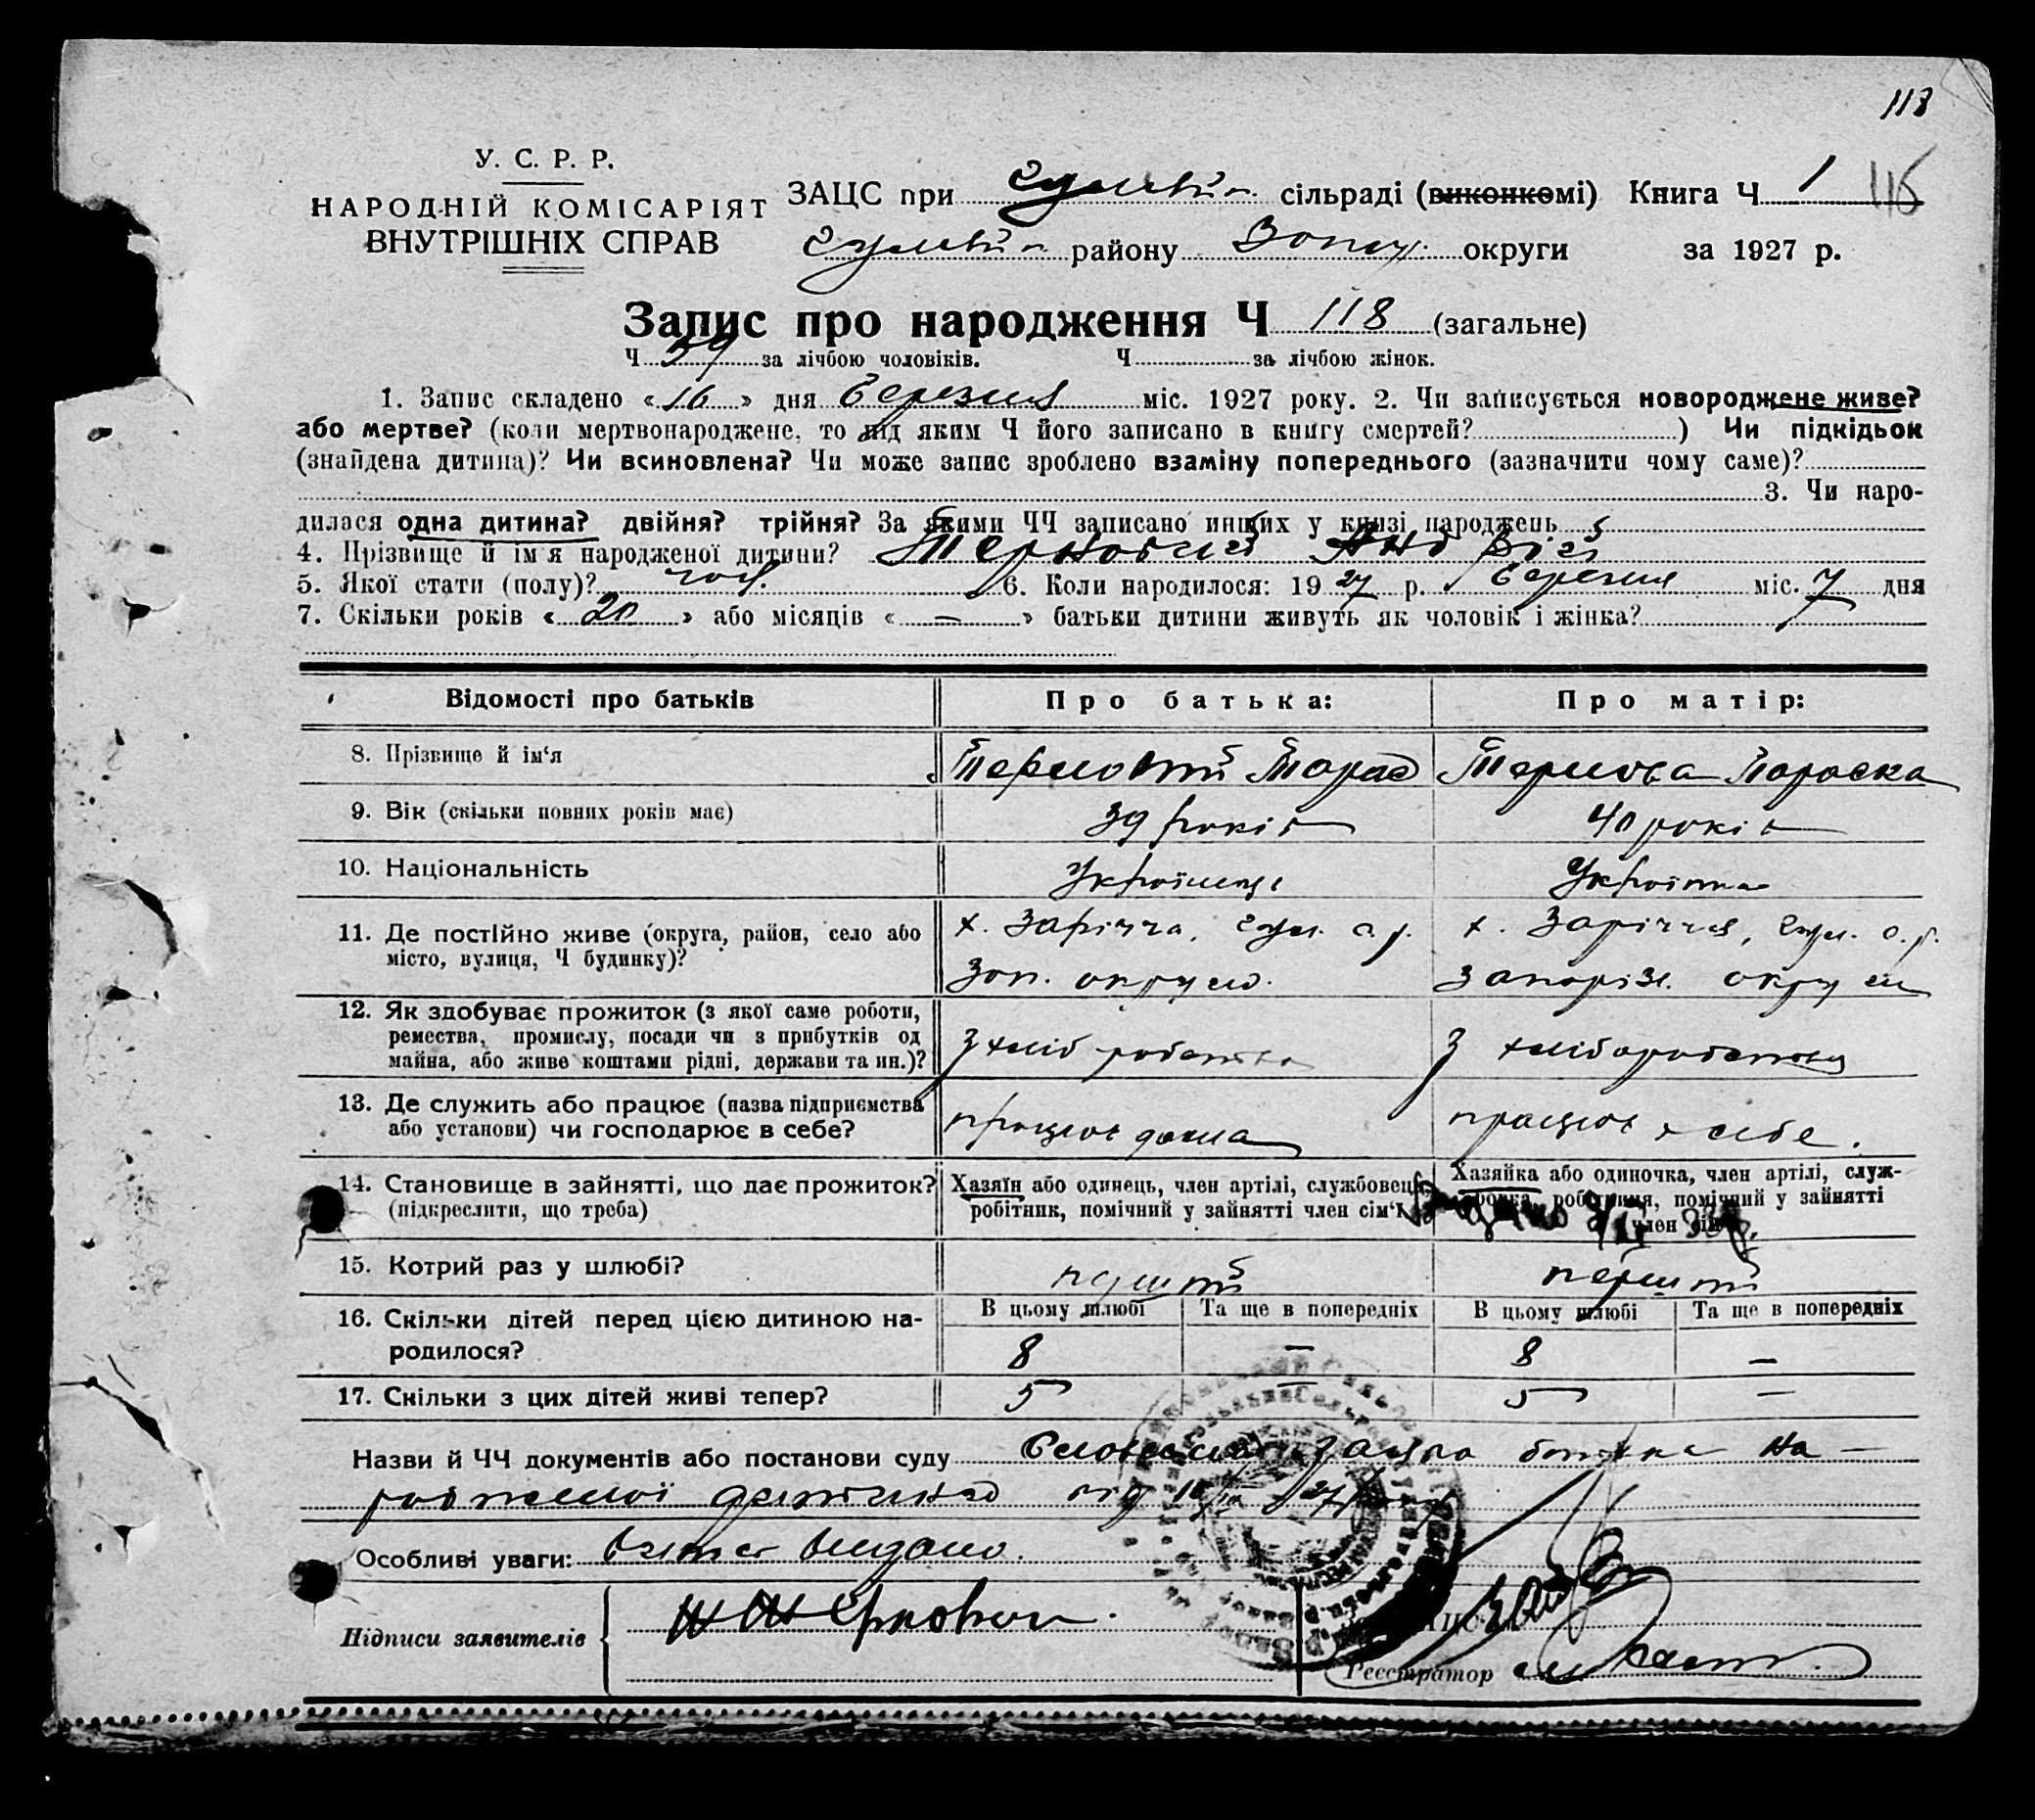 118
У. С. Р. Р.
НАРОДНІЙ КОМІСАРІЯТ
ВНУТРІШНІХ СПРАВ
ЗАЦС при сільраді (виконкомі) Книга Ч 1 116
району Запор. округи за 1927 р.
Запис про народження Ч 118 (загальне)
Ч 59 за лічбою чоловіків. Ч за лічбою жінок.
1. Запис складено « 16 » дня березня міс. 1927 року. 2. Чи записується новороджене живе?
або мертве? (коли мертвонароджене, то під яким Ч його записано в книгу смертей? ) Чи підкідьок
(знайдена дитина)? Чи всиновлена? Чи може запис зроблено взаміну попереднього (зазначити чому саме)?
3. Чи наро-
дилася одна дитина? двійня? трійня? За якими ЧЧ записано инших у книзі народжень
4. Прізвище й ім'я народженої дитини? Терновий Андрій
5. Якої стати (полу)? чол. 6. Коли народилося: 19 27 р. березня міс. 7 дня
7. Скільки років « 20 » або місяців « — » батьки дитини живуть як чоловік і жінка?
Відомості про батьків Про батька: Про матір:
8. Прізвище й ім'я Терновий Тарас Тернова Параска
9. Вік (скільки повних років має) 39 років 40 років
10. Національність Українець Українка
11. Де постійно живе (округа, район, село або
місто, вулиця, Ч будинку)?
х. Заріччя, с. р. х. Заріччя, с. р.
Зап. округи. Запоріз. округи
12. Як здобуває прожиток (з якої саме роботи,
ремества, промислу, посади чи з прибутків од
майна, або живе коштами рідні, держави та ин.)?
з хліборобства з хліборобства
13. Де служить або працює (назва підприємства
або установи) чи господарює в себе?
працює дома працює в себе.
14. Становище в зайнятті, що дає прожиток?
(підкреслити, що треба)
Хазяїн або одинець, член артілі, службовець,
робітник, помічний у зайнятті член сім'ї
Хазяйка або одиночка, член артілі, служ-
бовка, робітниця, помічний у зайнятті
член сім'ї
15. Котрий раз у шлюбі? перший перший
16. Скільки дітей перед цією дитиною на-
родилося?
В цьому шлюбі Та ще в попередніх В цьому шлюбі Та ще в попередніх
8 — 8 —
17. Скільки з цих дітей живі тепер? 5 — 5 —
Назви й ЧЧ документів або постанови суду Словесна заява батька на-
родженої дитини від 16/III 27
Особливі уваги: видано.
Підписи заявителів
Реєстратор